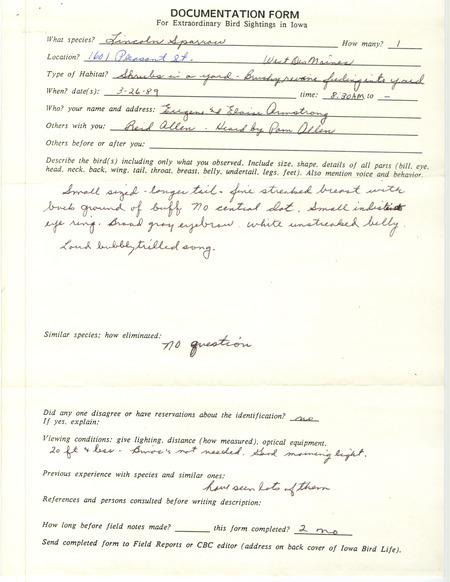 DOCUMENTATION FORM
For Extraordinary Bird Sightings in Iowa
What species? Lincoln Sparrow How many? 1
Location? 1601 Pleasant St. West Des Moines
Type of Habitat? Shrubs in a yard - Brushy ravine feeding into yard
When? date(s): 3-26-89 time: 8:30AM to -
Who? your name and address: Eugene & Eloise Armstrong
Others with you: Reid Allen - Heard by Pam Allen
Others before or after you:
Describe the bird(s) including only what you observed. Include size, shape, details of all parts (bill, eye,
head, neck, back, wing, tail, throat, breast, belly, undertail, legs, feet). Also mention voice and behavior.
Small sized - longer tail - fine streaked breast with
back ground of buff no central dot. Small indistinct
eye ring. Broad gray eyebrow. white unstreaked belly.
Loud bubbly trilled song.
Similar species; how eliminated:
no question
Did any one disagree or have reservations about the identification? no
If yes, explain:
Viewing conditions: give lighting, distance (how measured), optical equipment.
20 ft & less - Binoc's not needed. Good morning light.
Previous experience with species and similar ones:
have seen lots of them
References and persons consulted before writing description:
How long before field notes made? this form completed? 2 mo
Send completed form to Field Reports or CBC editor (address on back cover of Iowa Bird Life).